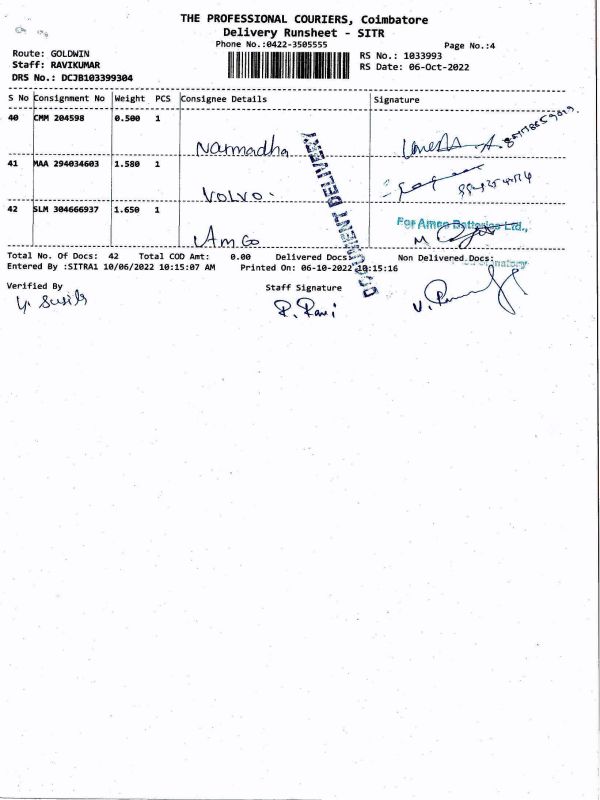 THE PROFESSIONAL COURIERS, Coimbatore
Delivery Runsheet - SITR
Phone No.:0422-3505555
Page No.:4
Route: GOLDWIN
RS No.: 1033993
Staff: RAVIKUMAR
RS Date: 06-Oct-2022
DRS No.: DCJB103399304
S No Consignment No Weight PCS Consignee Details Signature
40 CMM 204598 0.500 1
Narmadha
41 MAA 294034603 1.580 1
VOLVO.
42 SLM 304666937 1.650 1
For Amco Batteries Ltd.,
Amco
DOCUMENT DELIVERY
Total No. Of Docs: 42 Total COD Amt: 0.00 Delivered Docs: Non Delivered Docs:
Entered By :SITRA1 10/06/2022 10:15:07 AM Printed On: 06-10-2022 10:15:16
Verified By Staff Signature
R. Ravi